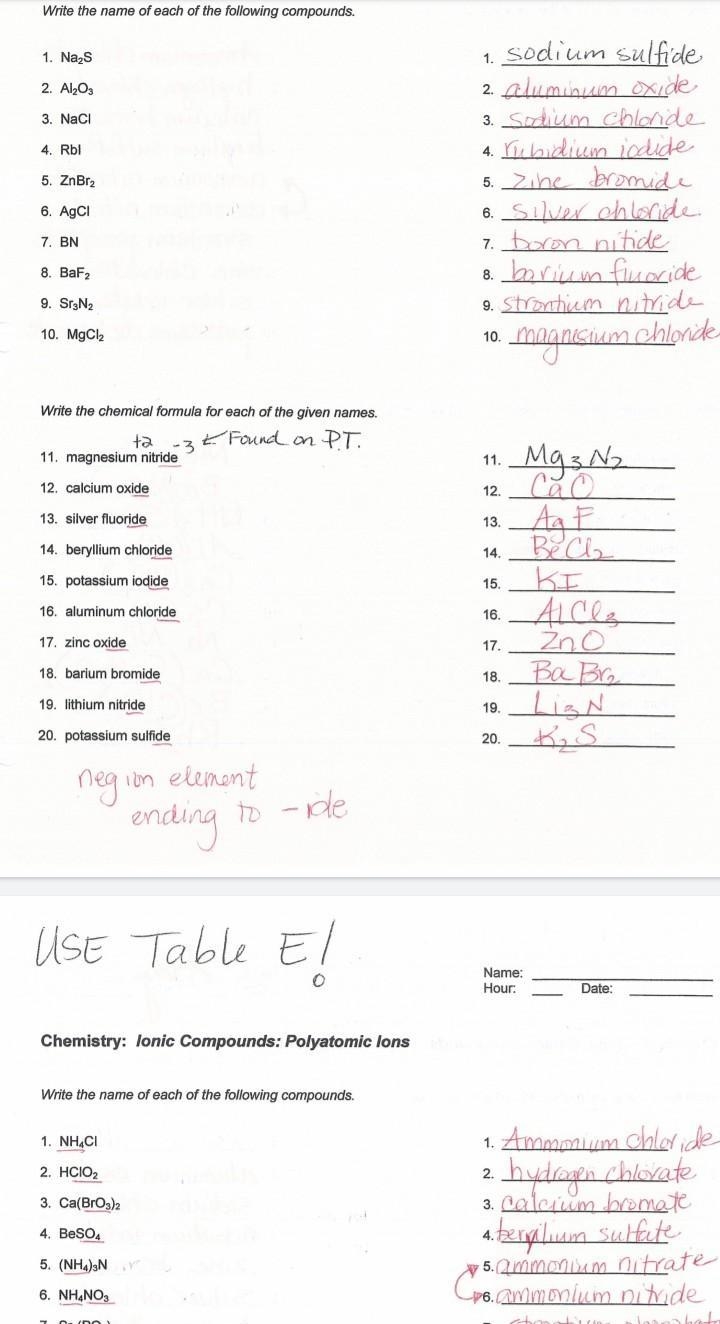 Write the name of each of the following compounds.
1. Na₂S 1. sodium sulfide
2. Al₂O₃ 2. aluminum oxide
3. NaCl 3. Sodium chloride
4. RbI 4. rubidium iodide
5. ZnBr₂ 5. zinc bromide
6. AgCl 6. silver chloride
7. BN 7. boron nitide
8. BaF₂ 8. barium fluoride
9. Sr₃N₂ 9. strontium nitride
10. MgCl₂ 10. magnesium chloride
Write the chemical formula for each of the given names.
+2 -3 ← Found on P.T.
11. magnesium nitride 11. Mg₃N₂
12. calcium oxide 12. CaO
13. silver fluoride 13. AgF
14. beryllium chloride 14. BeCl₂
15. potassium iodide 15. KI
16. aluminum chloride 16. AlCl₃
17. zinc oxide 17. ZnO
18. barium bromide 18. BaBr₂
19. lithium nitride 19. Li₃N
20. potassium sulfide 20. K₂S
neg ion element
ending to -ide
USE Table E!
Name:
Hour: Date:
Chemistry: Ionic Compounds: Polyatomic Ions
Write the name of each of the following compounds.
1. NH₄Cl 1. Ammonium chloride
2. HClO₂ 2. hydrogen chlorate
3. Ca(BrO₃)₂ 3. calcium bromate
4. BeSO₄ 4. beryllium sulfate
5. (NH₄)₃N 5. ammonium nitrate
6. NH₄NO₃ 6. ammonium nitride